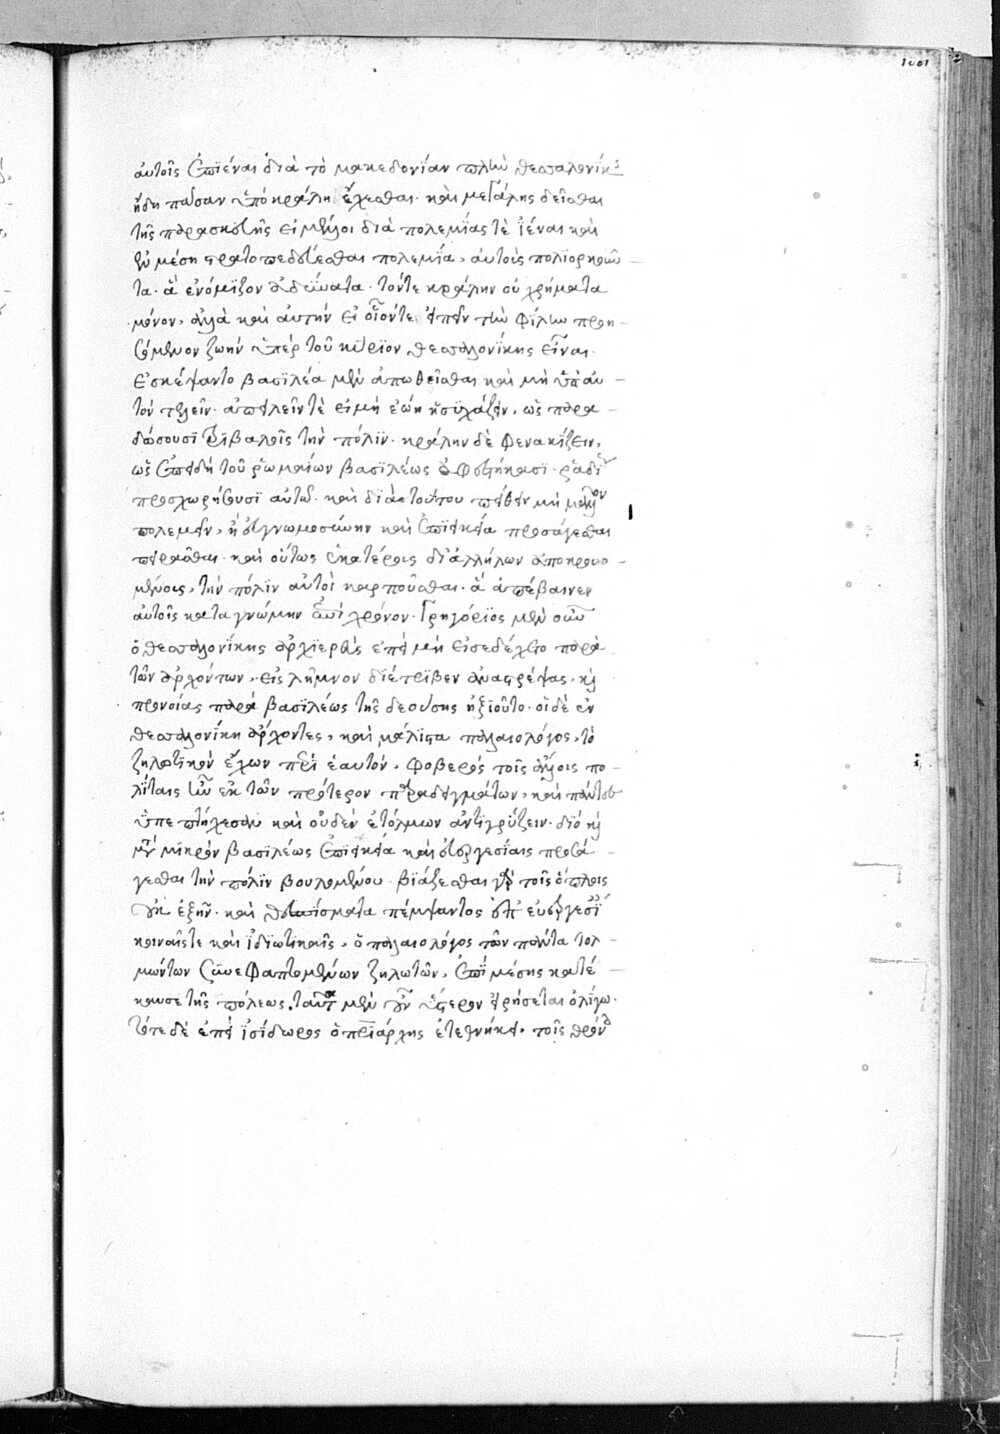 1001
αὐτοῖς ἐπϊέναι διὰ τὸ μακεδονίαν πλὴν θεσσαλονίκης
ἤδη πᾶσαν ὑπὸ κράλη ἔχεσθαι· καὶ μεγάλης δεῖσθαι
τῆς παρασκευῆς εἰ μέλλοι διὰ πολεμίας τὲ ἰέναι καὶ
ἐν μέση στρατοπεδεύεσθαι πολεμία, αὐτοὺς πολιορκοῦν
τα· ἃ ἐνόμιζον ἀδύνατα· τόντε κράλην οὐ χρήματα
μόνον, ἀλλὰ καὶ αὐτὴν εἰ οἷόντε εἰπεῖν τὴν φίλην προη
σόμενον ζωὴν ὑπὲρ τοῦ κύριον θεσσαλονίκης εἶναι·
ἐσκέψαντο βασιλέα μὲν ἀπωθεῖσθαι καὶ μὴ ὑπ' αὐ
τὸν τελεῖν· ἀπειλεῖν τὲ εἰ μὴ ἐώη ἡσυχάζειν, ὡς παρα
δώσουσι τριβαλοῖς τὴν πόλϊν· κράλην δὲ φενακίζειν,
ὡς ἐπειδὴ τοῦ ῥωμαίων βασιλέως ἀφεστήκασι· ῥαδί
προσχωρήσουσϊ αὐτῶ· καὶ διὰ τοῦτο πείθειν μὴ μᾶλλον
πολεμεῖν, ἢ εὐγνωμοσύνην καὶ ἐπιείκεια προσάγεσθαι
πειρᾶσθαι· καὶ οὕτως ἑκατέροις δι' ἀλλήλων ἀποκρουο
μένοις, τὴν πόλϊν αὐτοὶ καρποῦσθαι· ἃ ἀπέβαινεν
αὐτοῖς κατα γνώμην ἐπὶ χρόνον· Γρηγόριος μὲν οὖν
ὁ θεσσαλονίκης ἀρχϊερεὺς ἐπεὶ μὴ εἰσεδέχετο παρὰ
τῶν ἀρχόντων, εἰς λῆμνον διέτριβεν ἀναστρέψας, καὶ
προνοίας παρὰ βασιλέως τῆς δεούσης ἠξιοῦτο· οἱ δὲ ἐν
θεσσαλονίκη ἄρχοντες, καὶ μάλιστα παλαιολόγος, τὸ
ζηλωτικὸν ἔχων περὶ ἑαυτὸν, φοβερὸς τοῖς ἄλλοις πο
λίταις ὢν ἐκ τῶν πρότερον παραδειγμάτων, καὶ πάντες
ὑπεπτήχεσαν καὶ οὐδὲν ἐτόλμων ἀντιγρύζειν· διὸ καὶ
μετὰ μικρὸν βασιλέως ἐπιείκεια καὶ εὐεργεσίαις προσά
γεσθαι τὴν πόλϊν βουλομένου· βϊάζεσθαι γὰρ τοῖς ὅπλοις
οὐκ ἐξῆν· καὶ θεσπίσματα πέμψαντος ἐπ' εὐεργεσί
κοιναῖς τε καὶ ἰδϊωτικαῖς, ὁ παλαιολόγος τῶν πάντα τολ
μώντων συνεφαπτομένων ζηλωτῶν, ἐπὶ μέσης κατέ
καυσε τῆς πόλεως, ταῦτα μὲν οὖν ὕστερον εἰρήσεται ὀλίγω·
τότε δὲ ἐπεὶ ἰσίδωρος ὁ πατριάρχης ἐτεθνήκει, τοῖς θρόν